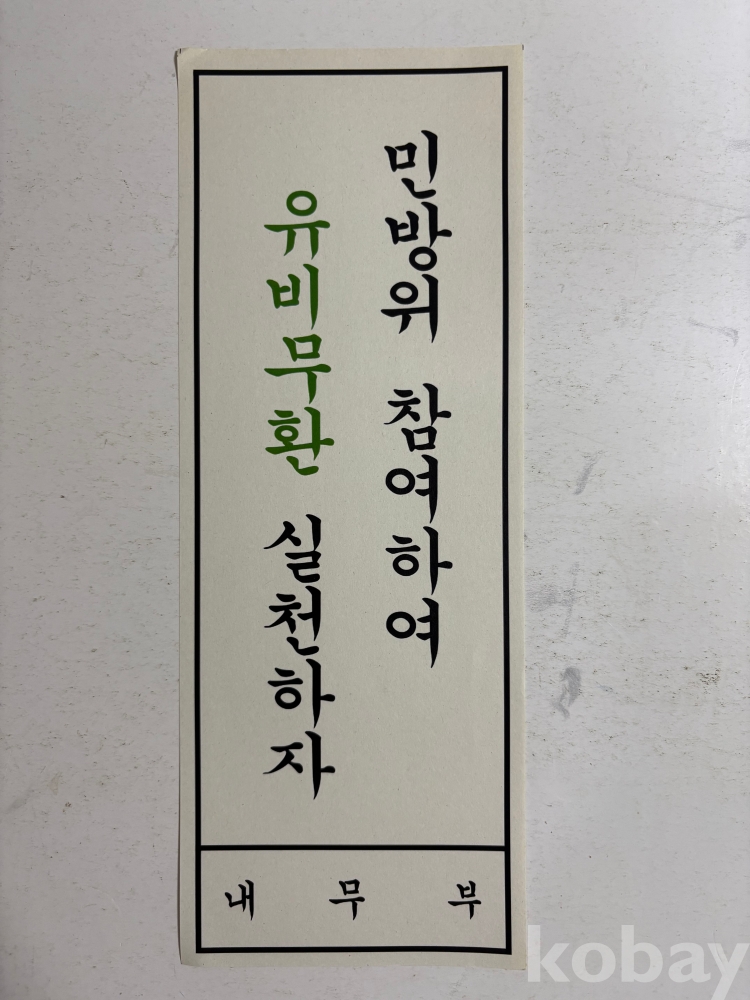 민방위 참여하여
유비무환 실천하자
내무부
kobay